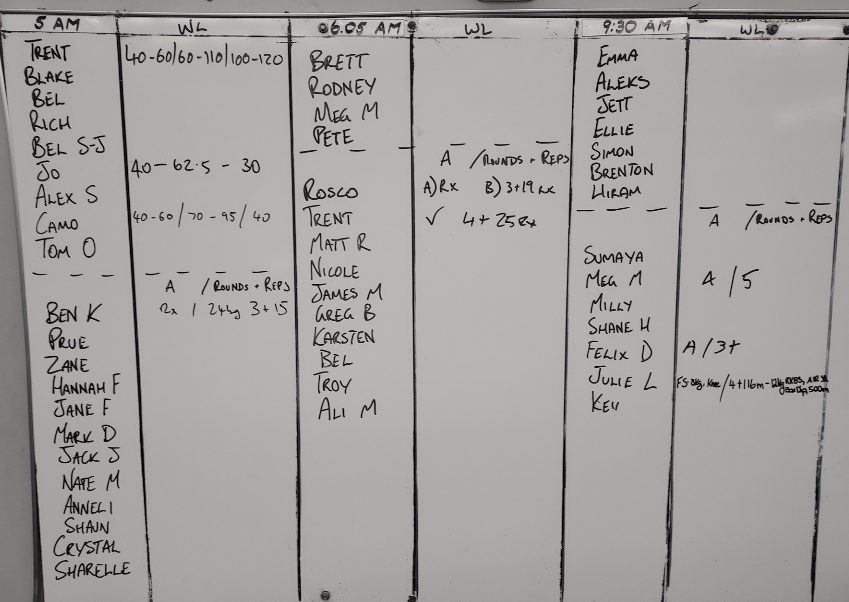 5 AM
WL
TRENT 40-60/60-110/100-120
BLAKE
BEL
RICH
BEL S-J
JO 40-62.5-30
ALEX S
CAMO 40-60/70-95/40
TOM O
A /ROUNDS + REPS
BEN K Rx / 24kg 3+15
PRUE
ZANE
HANNAH F
JANE F
MARK D
JACK J
NATE M
ANNELI
SHAUN
CRYSTAL
SHARELLE
6.05 AM
WL
BRETT
RODNEY
MEG M
PETE
A /ROUNDS + REPS
ROSCO A) Rx B) 3+19 Rx
TRENT ✓ 4+25 Rx
MATT R
NICOLE
JAMES M
GREG B
KARSTEN
BEL
TROY
ALI M
9:30 AM
WL
EMMA
ALEKS
JETT
ELLIE
SIMON
BRENTON
HIRAM
A /ROUNDS + REPS
SUMAYA
MEG M A/5
MILLY
SHANE H
FELIX D A/3+
JULIE L FS 8kg, /4+116m-12kg
KEV